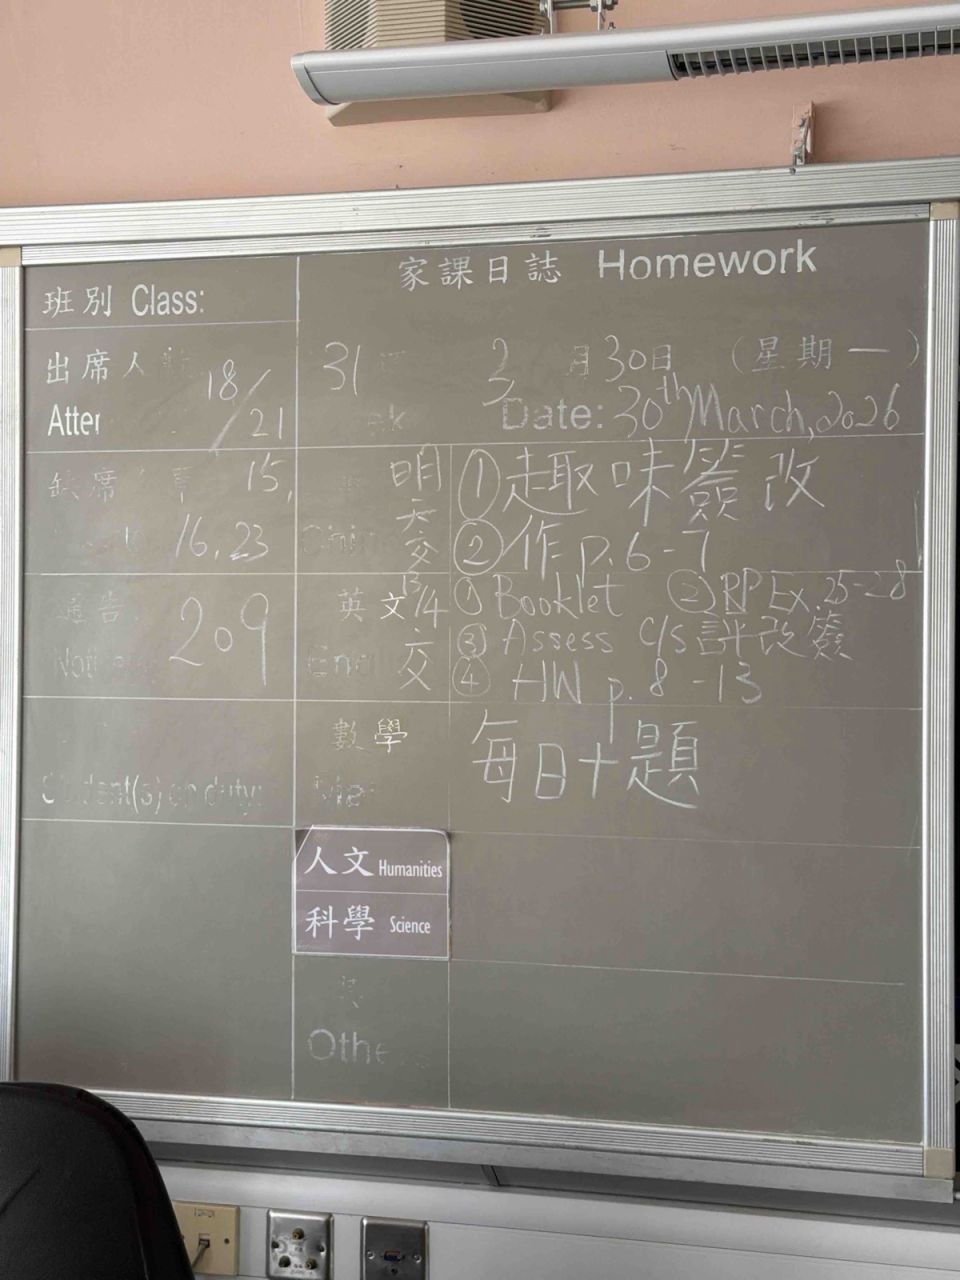 家課日誌 Homework
班別 Class:
出席人 18/21
Atten
31
3月30日 (星期一)
Date: 30th March, 2026
缺席 15,
16, 23
明天交
① 趣味簽改
② 作 p.6-7
通告 209
英文 13/4 交
① Booklet ② RP Ex. 25-28
③ Assess c/s 評改簽
④ HW p.8-13
數學
每日十題
Student(s) on duty:
人文 Humanities
科學 Science
Othe